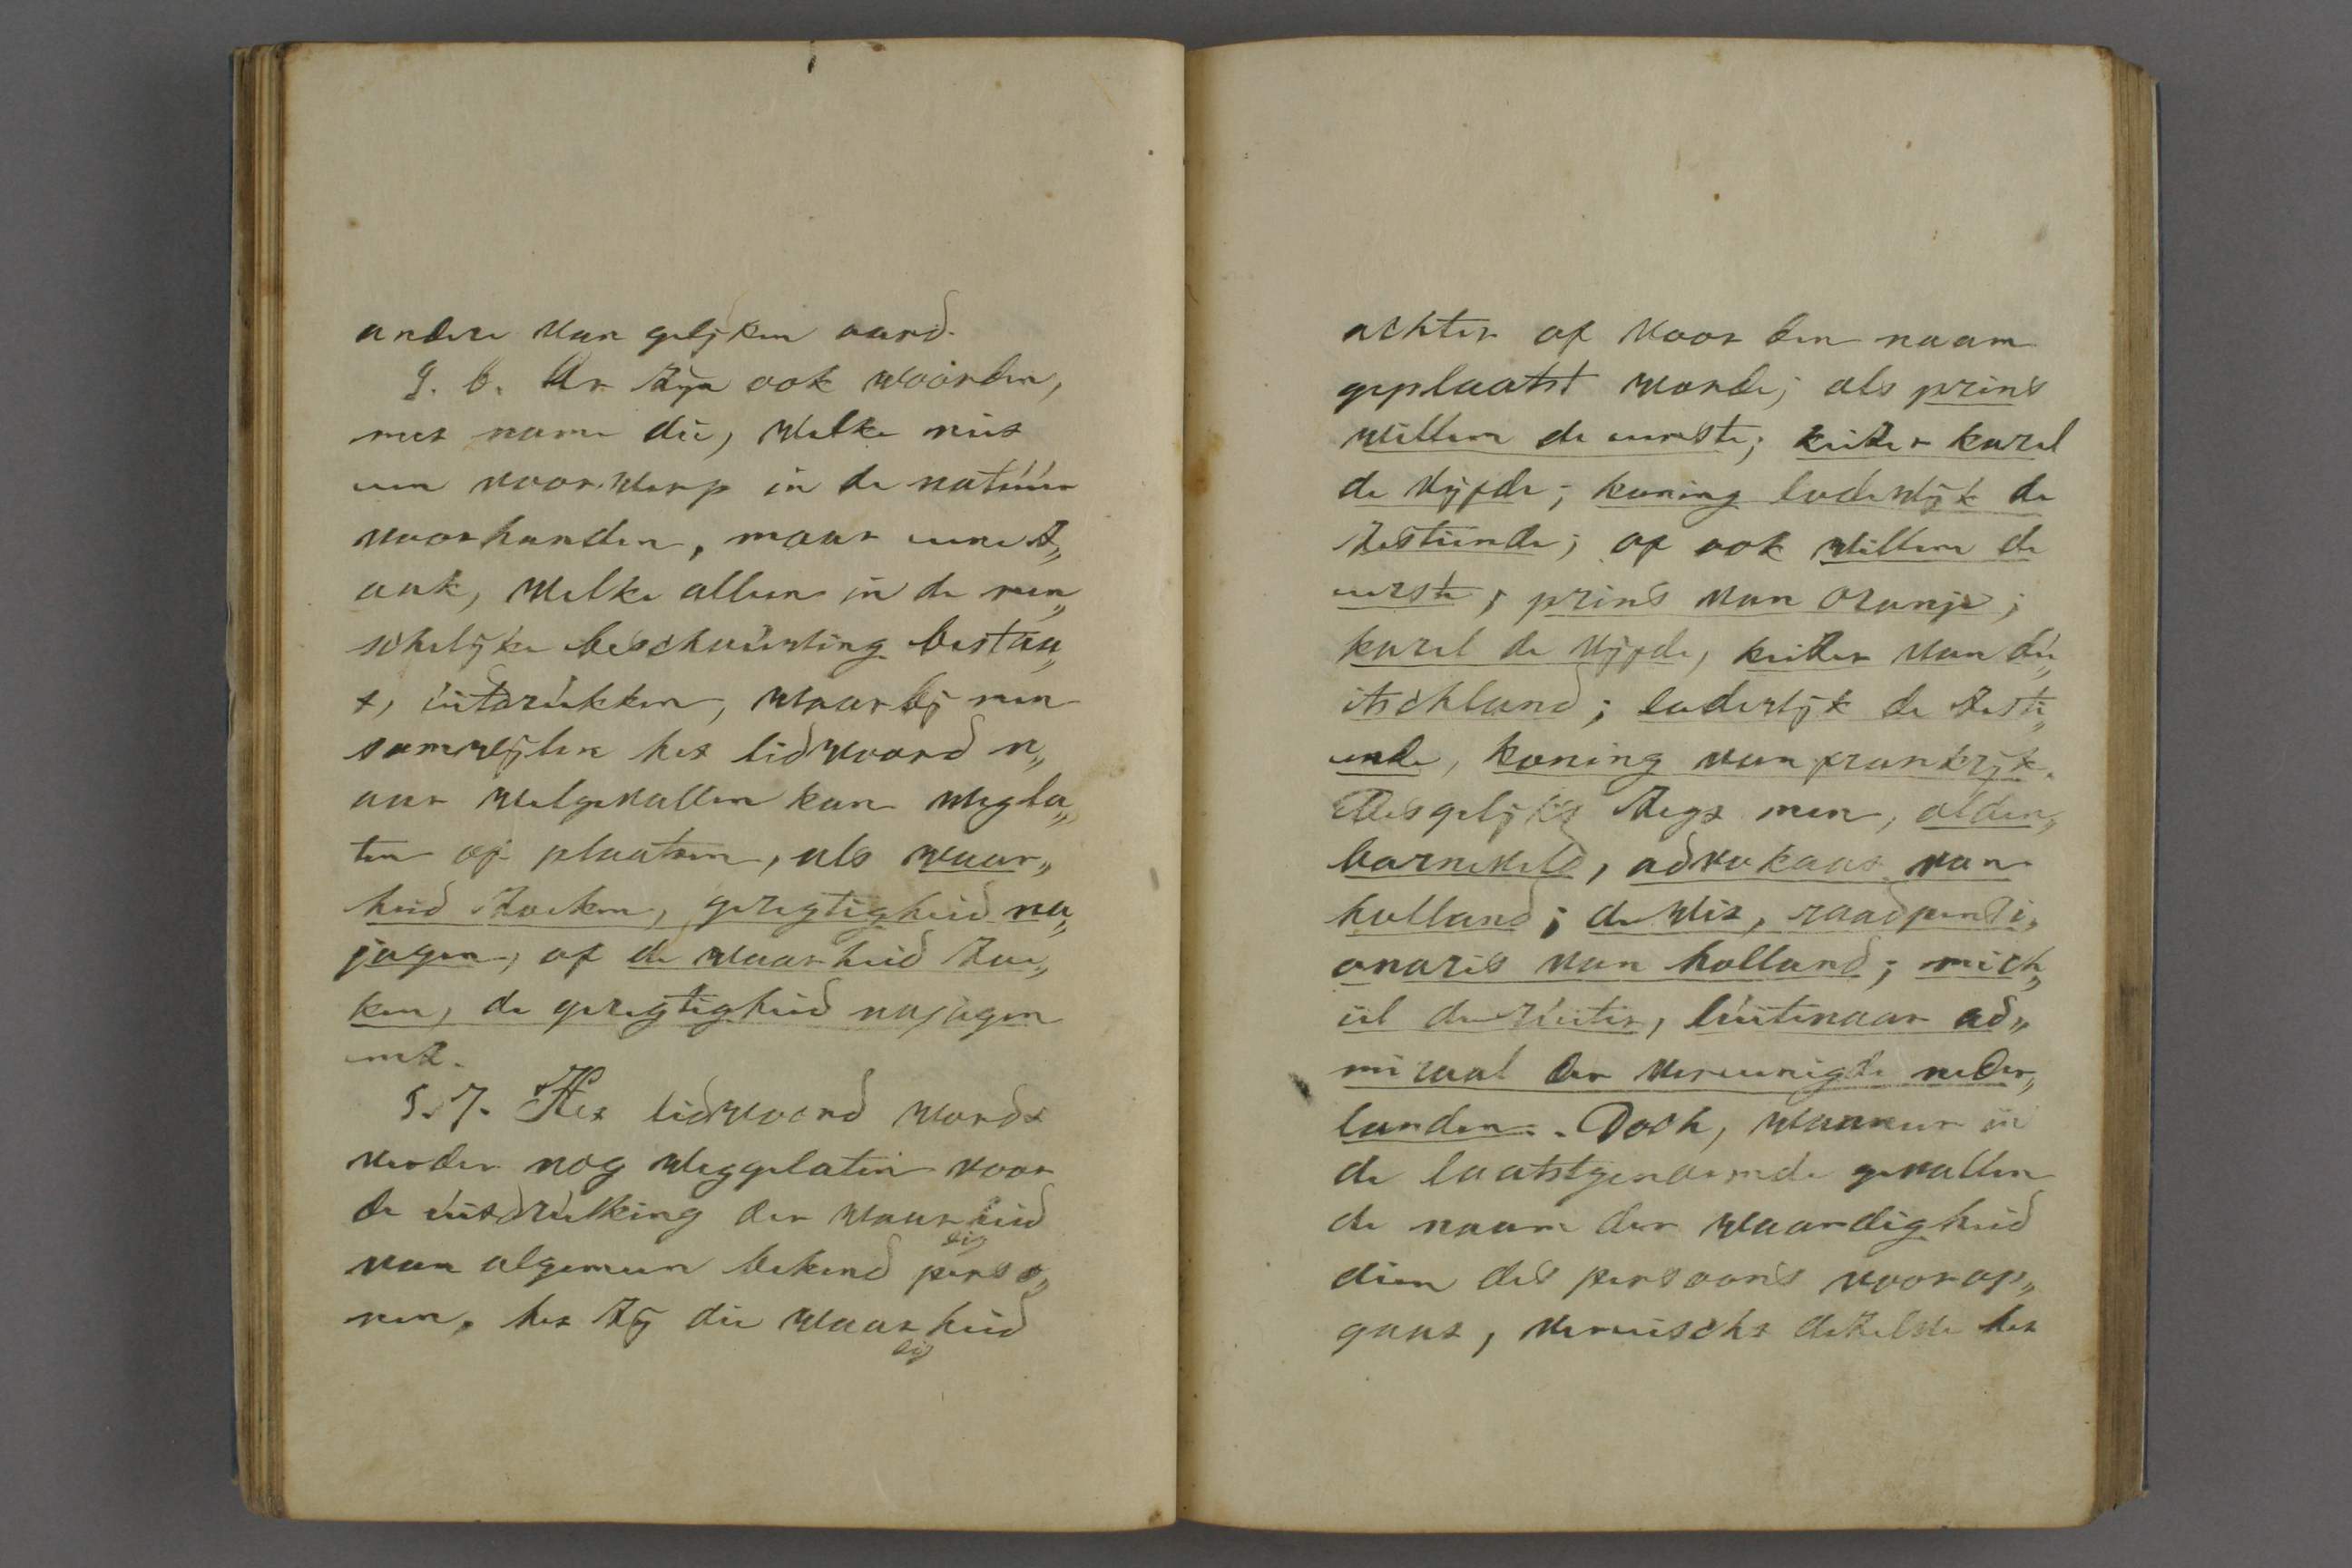 andere van gelijken aard.
§. 6. Er zijn ook woorden,
met name die, welke niet
een voorwerp in de natuur
voorhanden, maar eene z„
aak, welke alleen in de men„
schelijke beschouwing bestaa„
t, uitdrukken, waarbij men
somwijlen het lidwoord n„
aar welgevallen kan wegla„
ten of plaatsen, als waar„
heid zoeken, geregtigheid na„
jagen, of de waarheid zoe„
ken, de geregtigheid najagen
enz.
§. 7. Het lidwoord wordt
verder nog weggelaten voor
de uitdrukking der waardigheid
van algemeen bekend perso„
nen, het zij die waardigheid
achter of voor den naam
geplaatst worde; als prins
willem de eerste; keizer karel
de vijfde; koning lodewijk de
zestiende; of ook willem de
eerste, prins van oranje;
karel de vijfde, keizer van du„
itschland; lodewijk de zesti„
ende, koning van frankrijk.
Desgelijks zegt men, olden„
barneveld, advokaat van
holland; de wit, raadpensi„
onaris van holland; mich„
iel de ruiter, luitenaar ad„
miraal der vereenigde neder„
landen. Doch, wanneer in
de laatstgenoemde gevallen
de naam der waardigheid
dien des persoons voorop„
gaat, vereischt dezelve het